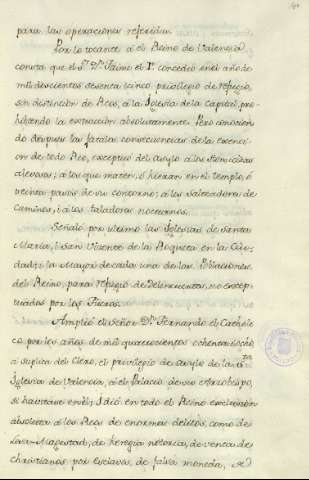 para las operaciones referidas.
Por lo tocante á el Reino de Valencia
consta que el Sr. Dn. Jaime el 1º concedió en el año de
mil doscientos sesenta i cinco privilegio de refugio,
sin distincion de Reos, á la Iglesia de la Capital, pro-
hibiendo la extraccion absolutamente. Pero conocien-
do despues las fatales consecuencias de la exencion
de todo Reo, exceptuó del asylo a los Homicidas
alevosos, a los que maten, o hieran en el templo, ó
treinta pasos de su contorno; a los Salteadores de
Caminos, i á los taladores nocturnos.
Señaló por ultimo las Iglesias de Santa
Maria, i San Vicente de la Roqueta en la Ciu-
dad; i la Mayor de cada una de las Poblaciones
del Reino, para refugio de Delincuentes, no excep-
tuados por los Fueros.
Amplió el Señor Dn. Fernando el Catholi-
co por los años de mil quatrocientos ochenta i ocho,
a suplica del Clero, el privilegio de asylo de la Sta.
Iglesia de Valencia, á el Palacio de su Arzobispo,
si habitase en èl; I dió en todo el Reino exclusion
absoluta a los Reos de enormes delitos, como de
Lesa-Magestad, de heregia notoria, de venta de
christianos por esclavos, de falsa moneda, de